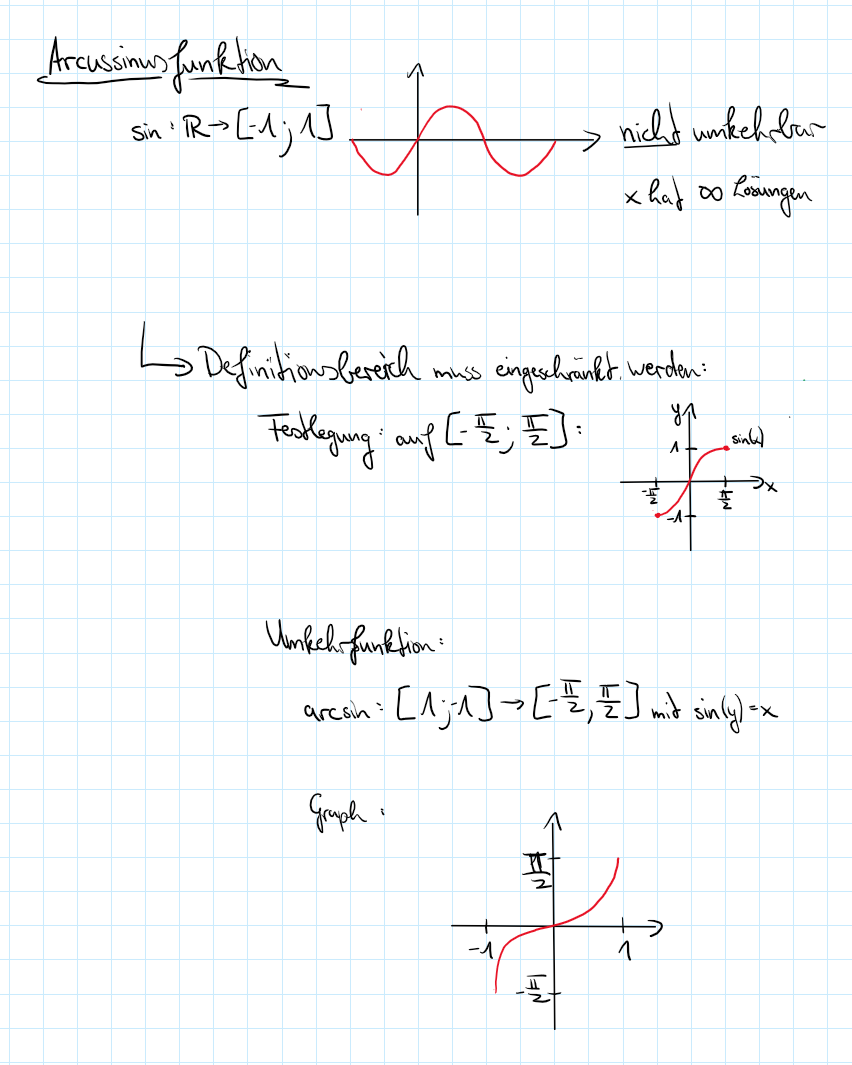 Arcussinusfunktion
sin: ℝ→[-1;1]
nicht umkehrbar
x hat ∞ Lösungen
Definitionsbereich muss eingeschränkt werden:
Festlegung: auf [-π/2; π/2]:
y
1
sin(x)
-π/2
π/2
x
-1
Umkehrfunktion:
arcsin: [1;-1] → [-π/2, π/2] mit sin(y)=x
Graph:
π/2
-1
1
-π/2